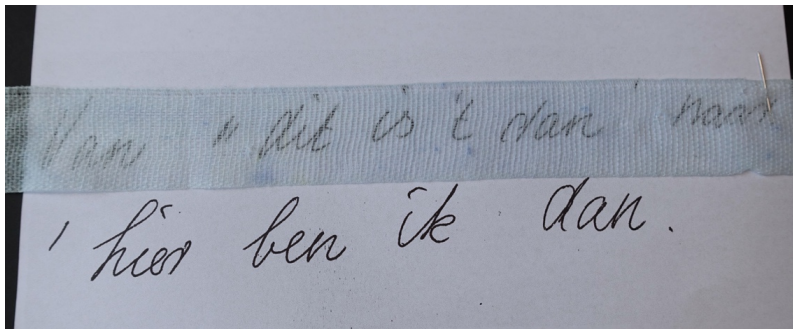 Van " dit is 't dan ' naar
' hier ben ik dan.